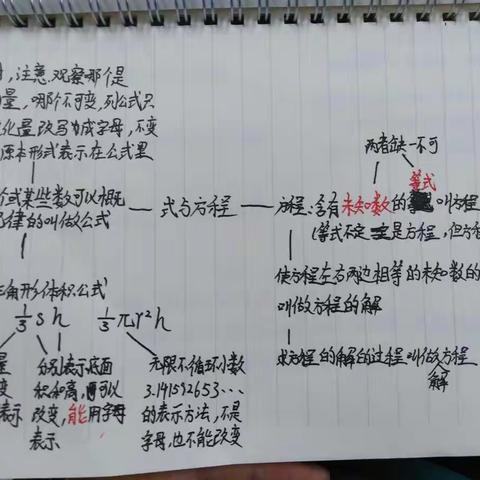 ，注意观察哪个是
量，哪个不可变，列公式只
化量改写为成字母，不变
原本形式表示在公式里
式或某些数可以概
律的叫做公式
式与方程
两者缺一不可
等式
方程：含有未知数的叫方程
(等式不定是方程，但方
使方程左右两边相等的未知数的
叫做方程的解
求方程的解的过程叫做方程
解
角形体积公式
1/3 s h
1/3 πr²h
量
变
表示
分别表示底面
积和高，可以
改变，能用字母
表示
无限不循环小数
3.141592653…
的表示方法，不是
字母，也不能改变